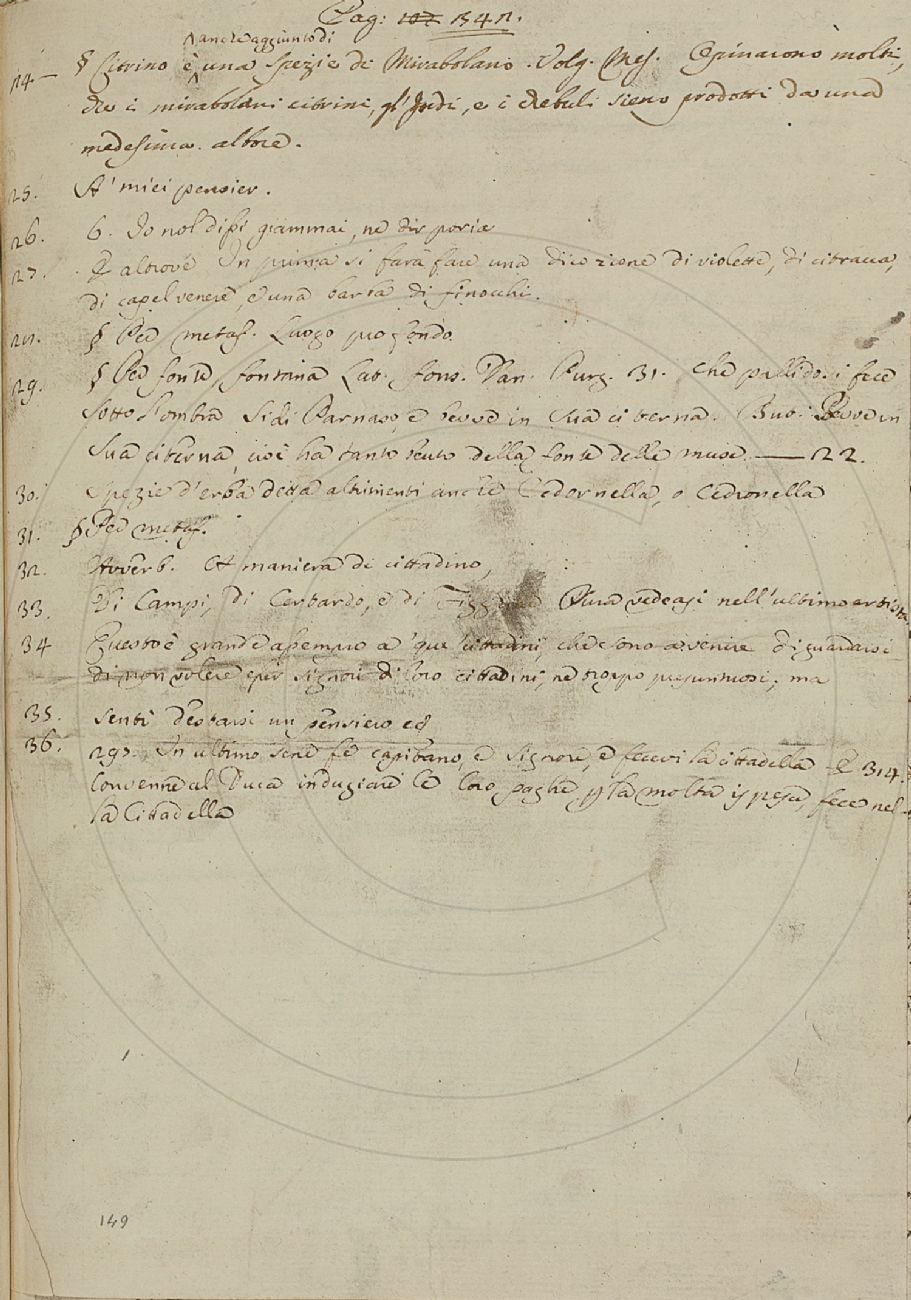 Pag: 107 1341.
anche aggiunto di
24. § Citrino è una spezie di Mirabolano. Volg. Mes. Opinarono molti,
che i mirabolani citrini, gl'Indi, e i chebuli sieno prodotti da una
medesima. albore.
25. A' miei pensier.
26. 6. Io nol dissi giammai, ne dir poria
27. E altrove In prima si farà fare una dicozione di violette, di citracca,
di capel venere, e una barba di finocchi.
§ Per metaf. Luogo profondo
29. § Per fonte, fontana Lat. fons. Dan. Purg. 31. Che pallido si fece
sotto l'ombra Si di Parnaso, e bevve in sua citerna. But. Bevve in
sua citerna, cioè ha tanto beuto della fonte delle muse. — 22.
30. Spezie d'erba detta altrimenti anche Cedornella, o Cedronella
31. § Per metaf.
32. Avverb. A maniera di cittadino,
33. Di Campi, di Certardo, e di Pura vedeasi nell'ultimo artista
34 Questo è grande asempro a' que' cittadini, che sono a venire di guardarsi
di non volere esser signori di loro cittadini, ne troppo presuntuosi; ma
35. Senti destarsi un pensiero ed
36. 297. In ultimo sene fe capitano, e signore, e fecevi la cittadella E 314.
Convenne al Duca indugiare le loro paghe, p la molta ispesa, fece nel-
la Cittadella
149